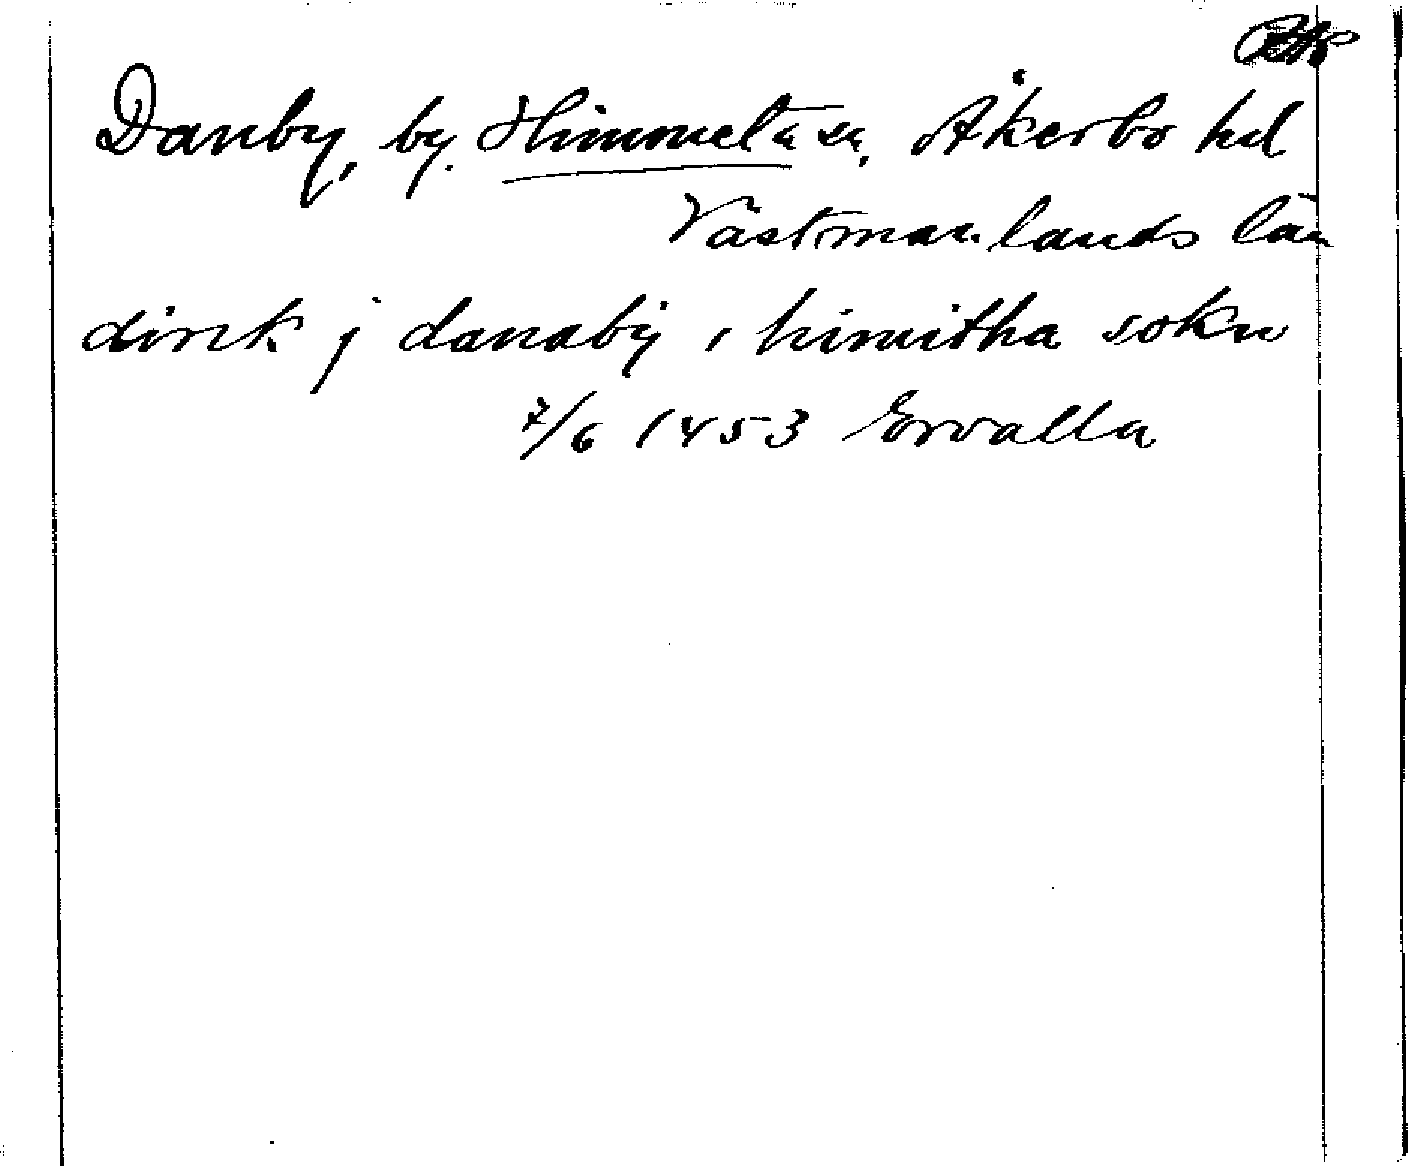 Danby, by. Himmeta sn, Åkerbo hd
Västmanlands län
dirik j danaby i himitha sokn
7/6 1453 Ervalla